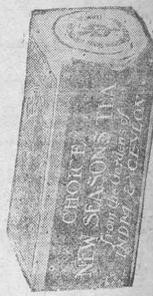 CHOICE
NEW SEASON'S TEA
from the Gardens of
INDIA & CEYLON